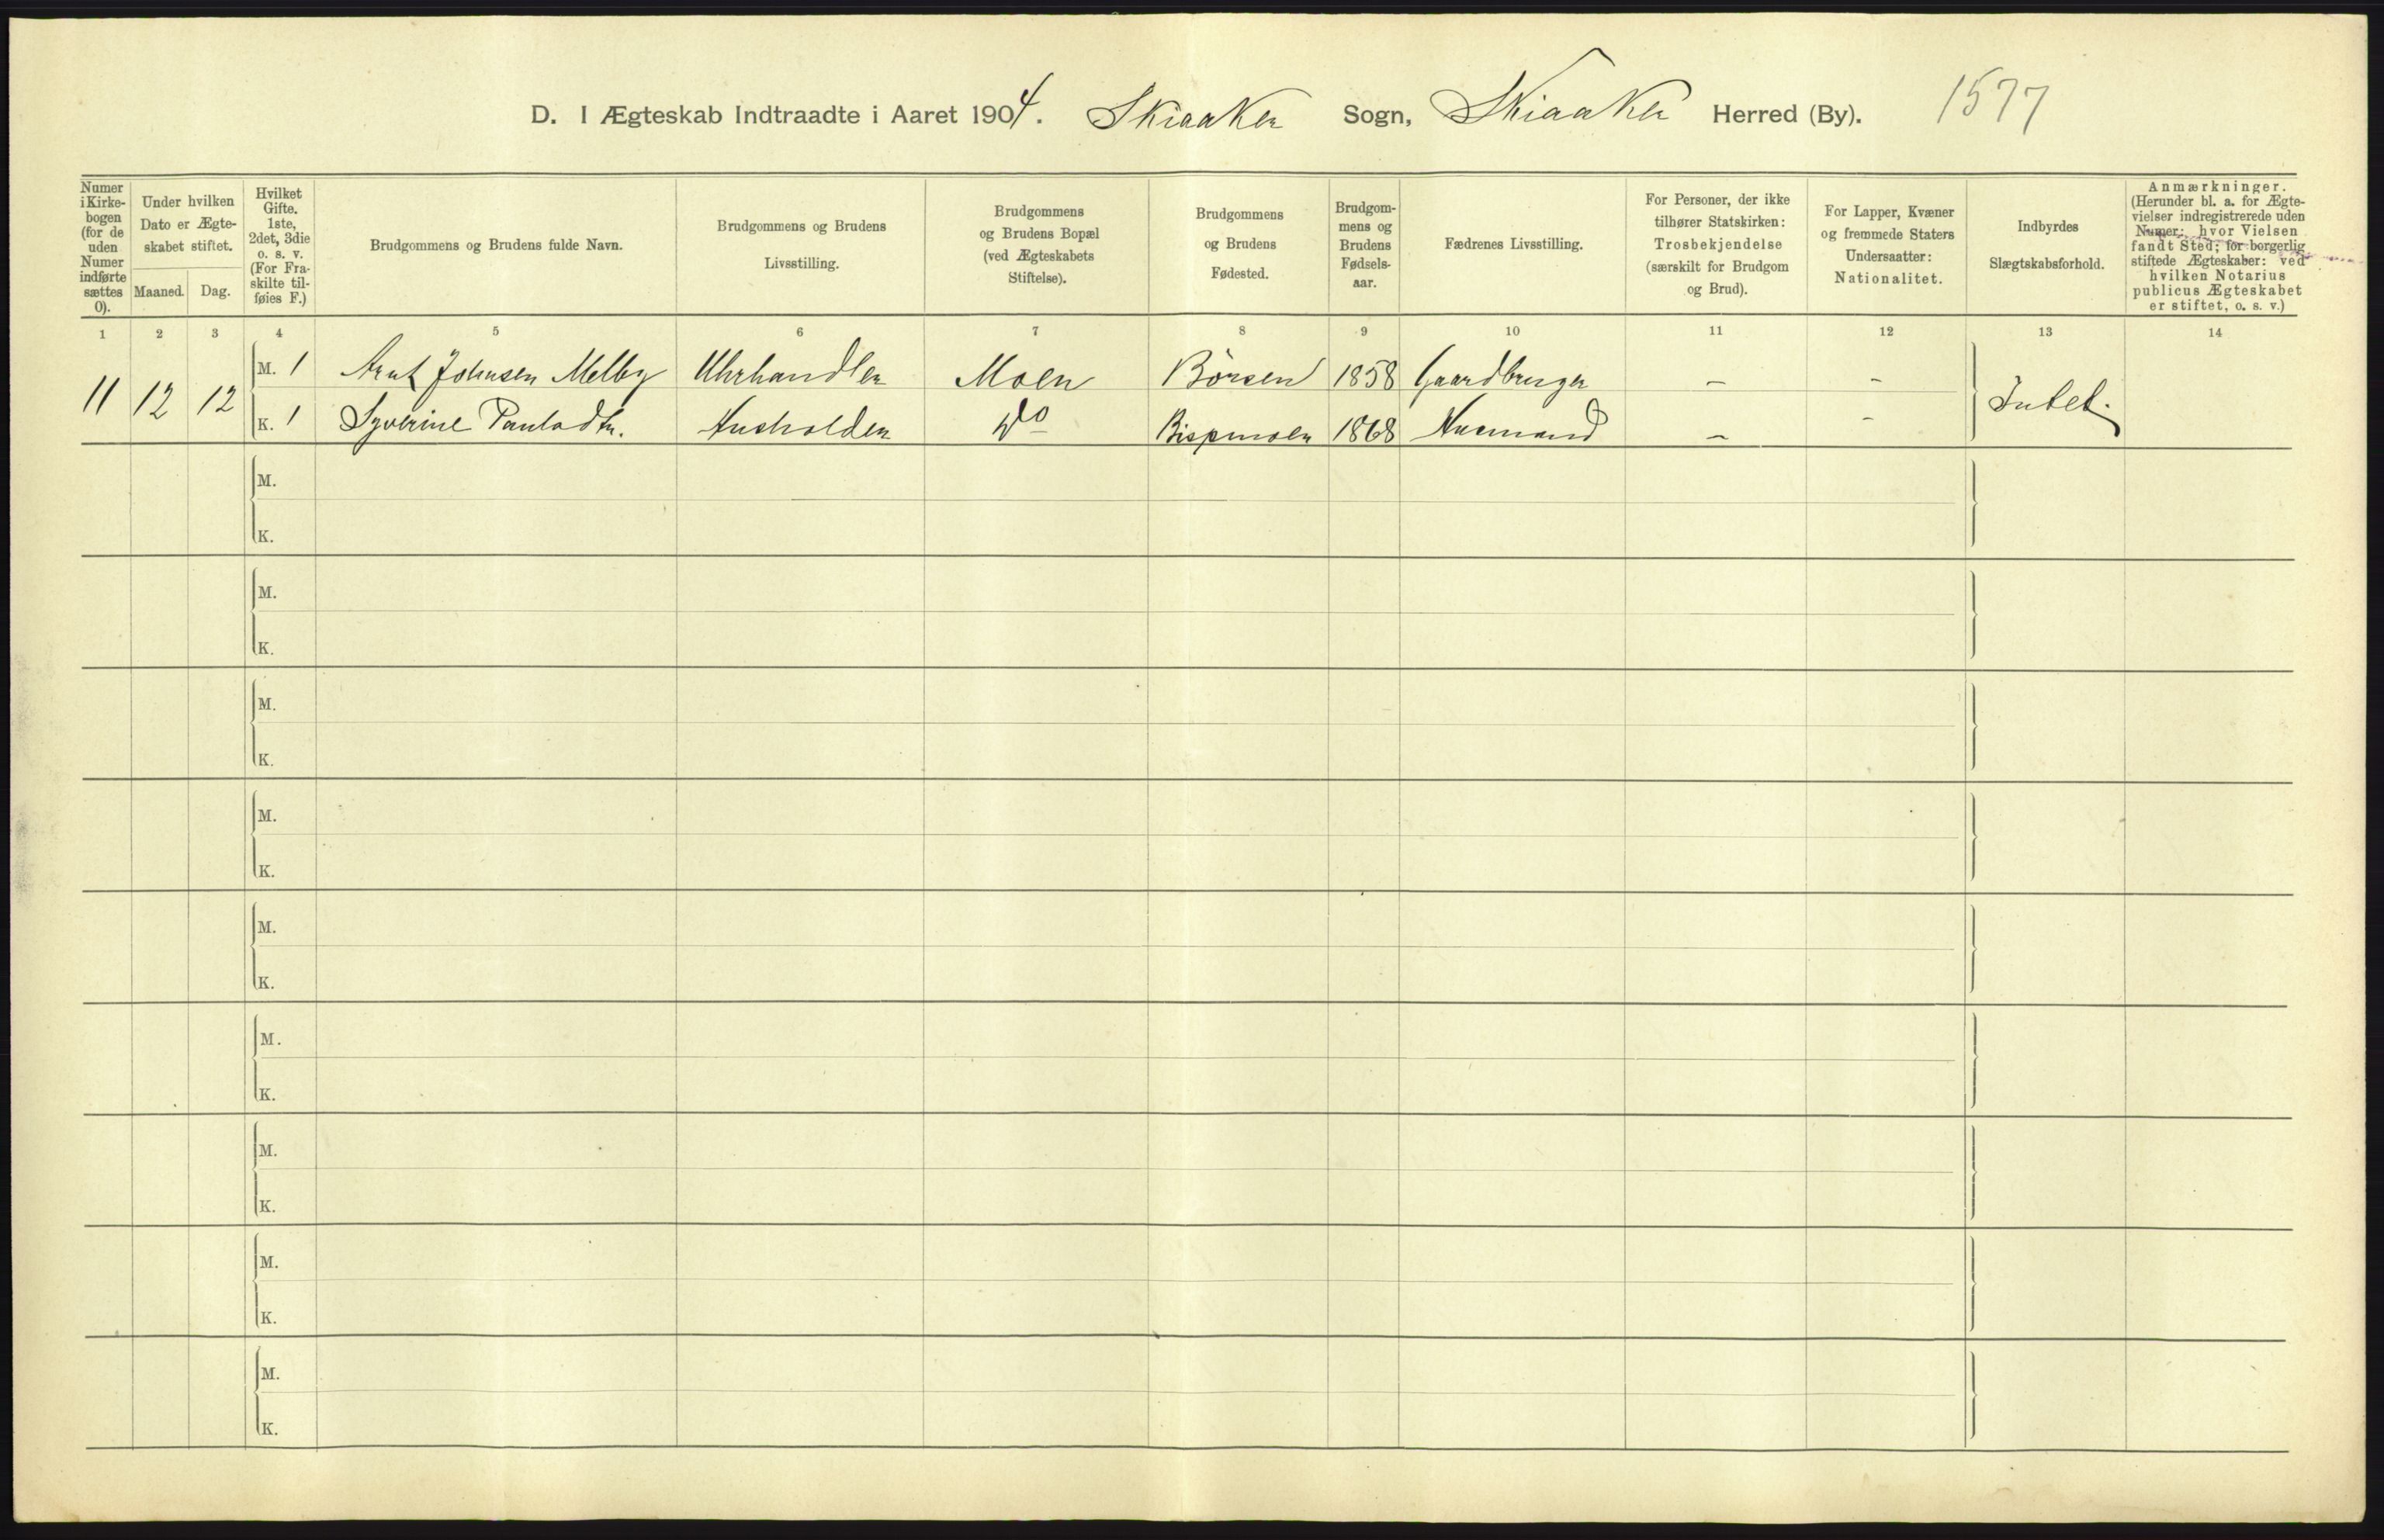 D. I Ægteskab Indtraadte i Aaret 1904. Skiaaker Sogn, Skiaaker Herred (By). 1577
Numer i Kirke-bogen (for de uden Numer indførte sættes 0).
Under hvilken Dato er Ægte-skabet stiftet.
Maaned. Dag.
Hvilket Gifte. 1ste, 2det, 3die o. s. v. (For Fra-skilte til-føies F.)
Brudgommens og Brudens fulde Navn.
Brudgommens og Brudens Livsstilling.
Brudgommens og Brudens Bopæl (ved Ægteskabets Stiftelse).
Brudgommens og Brudens Fødested.
Brudgom-mens og Brudens Fødsels-aar.
Fædrenes Livsstilling.
For Personer, der ikke tilhører Statskirken: Trosbekjendelse (særskilt for Brudgom og Brud).
For Lapper, Kvæner og fremmede Staters Undersaatter: Nationalitet.
Indbyrdes Slægtskabsforhold.
Anmærkninger. (Herunder bl. a. for Ægte-vielser indregistrerede uden Numer: hvor Vielsen fandt Sted; for borgerlig stiftede Ægteskaber: ved hvilken Notarius publicus Ægteskabet er stiftet, o. s. v.)
1 2 3 4 5 6 7 8 9 10 11 12 13 14
11 12 12 M. 1 Arnt Johnsen Melby Uhrhandler Moen Börsen 1858 Gaardbruger – – Intet.
K. 1 Syverine Paulsdtr. Husholder Do Bispmoen 1868 Husmand – –
M.
K.
M.
K.
M.
K.
M.
K.
M.
K.
M.
K.
M.
K.
M.
K.
M.
K.